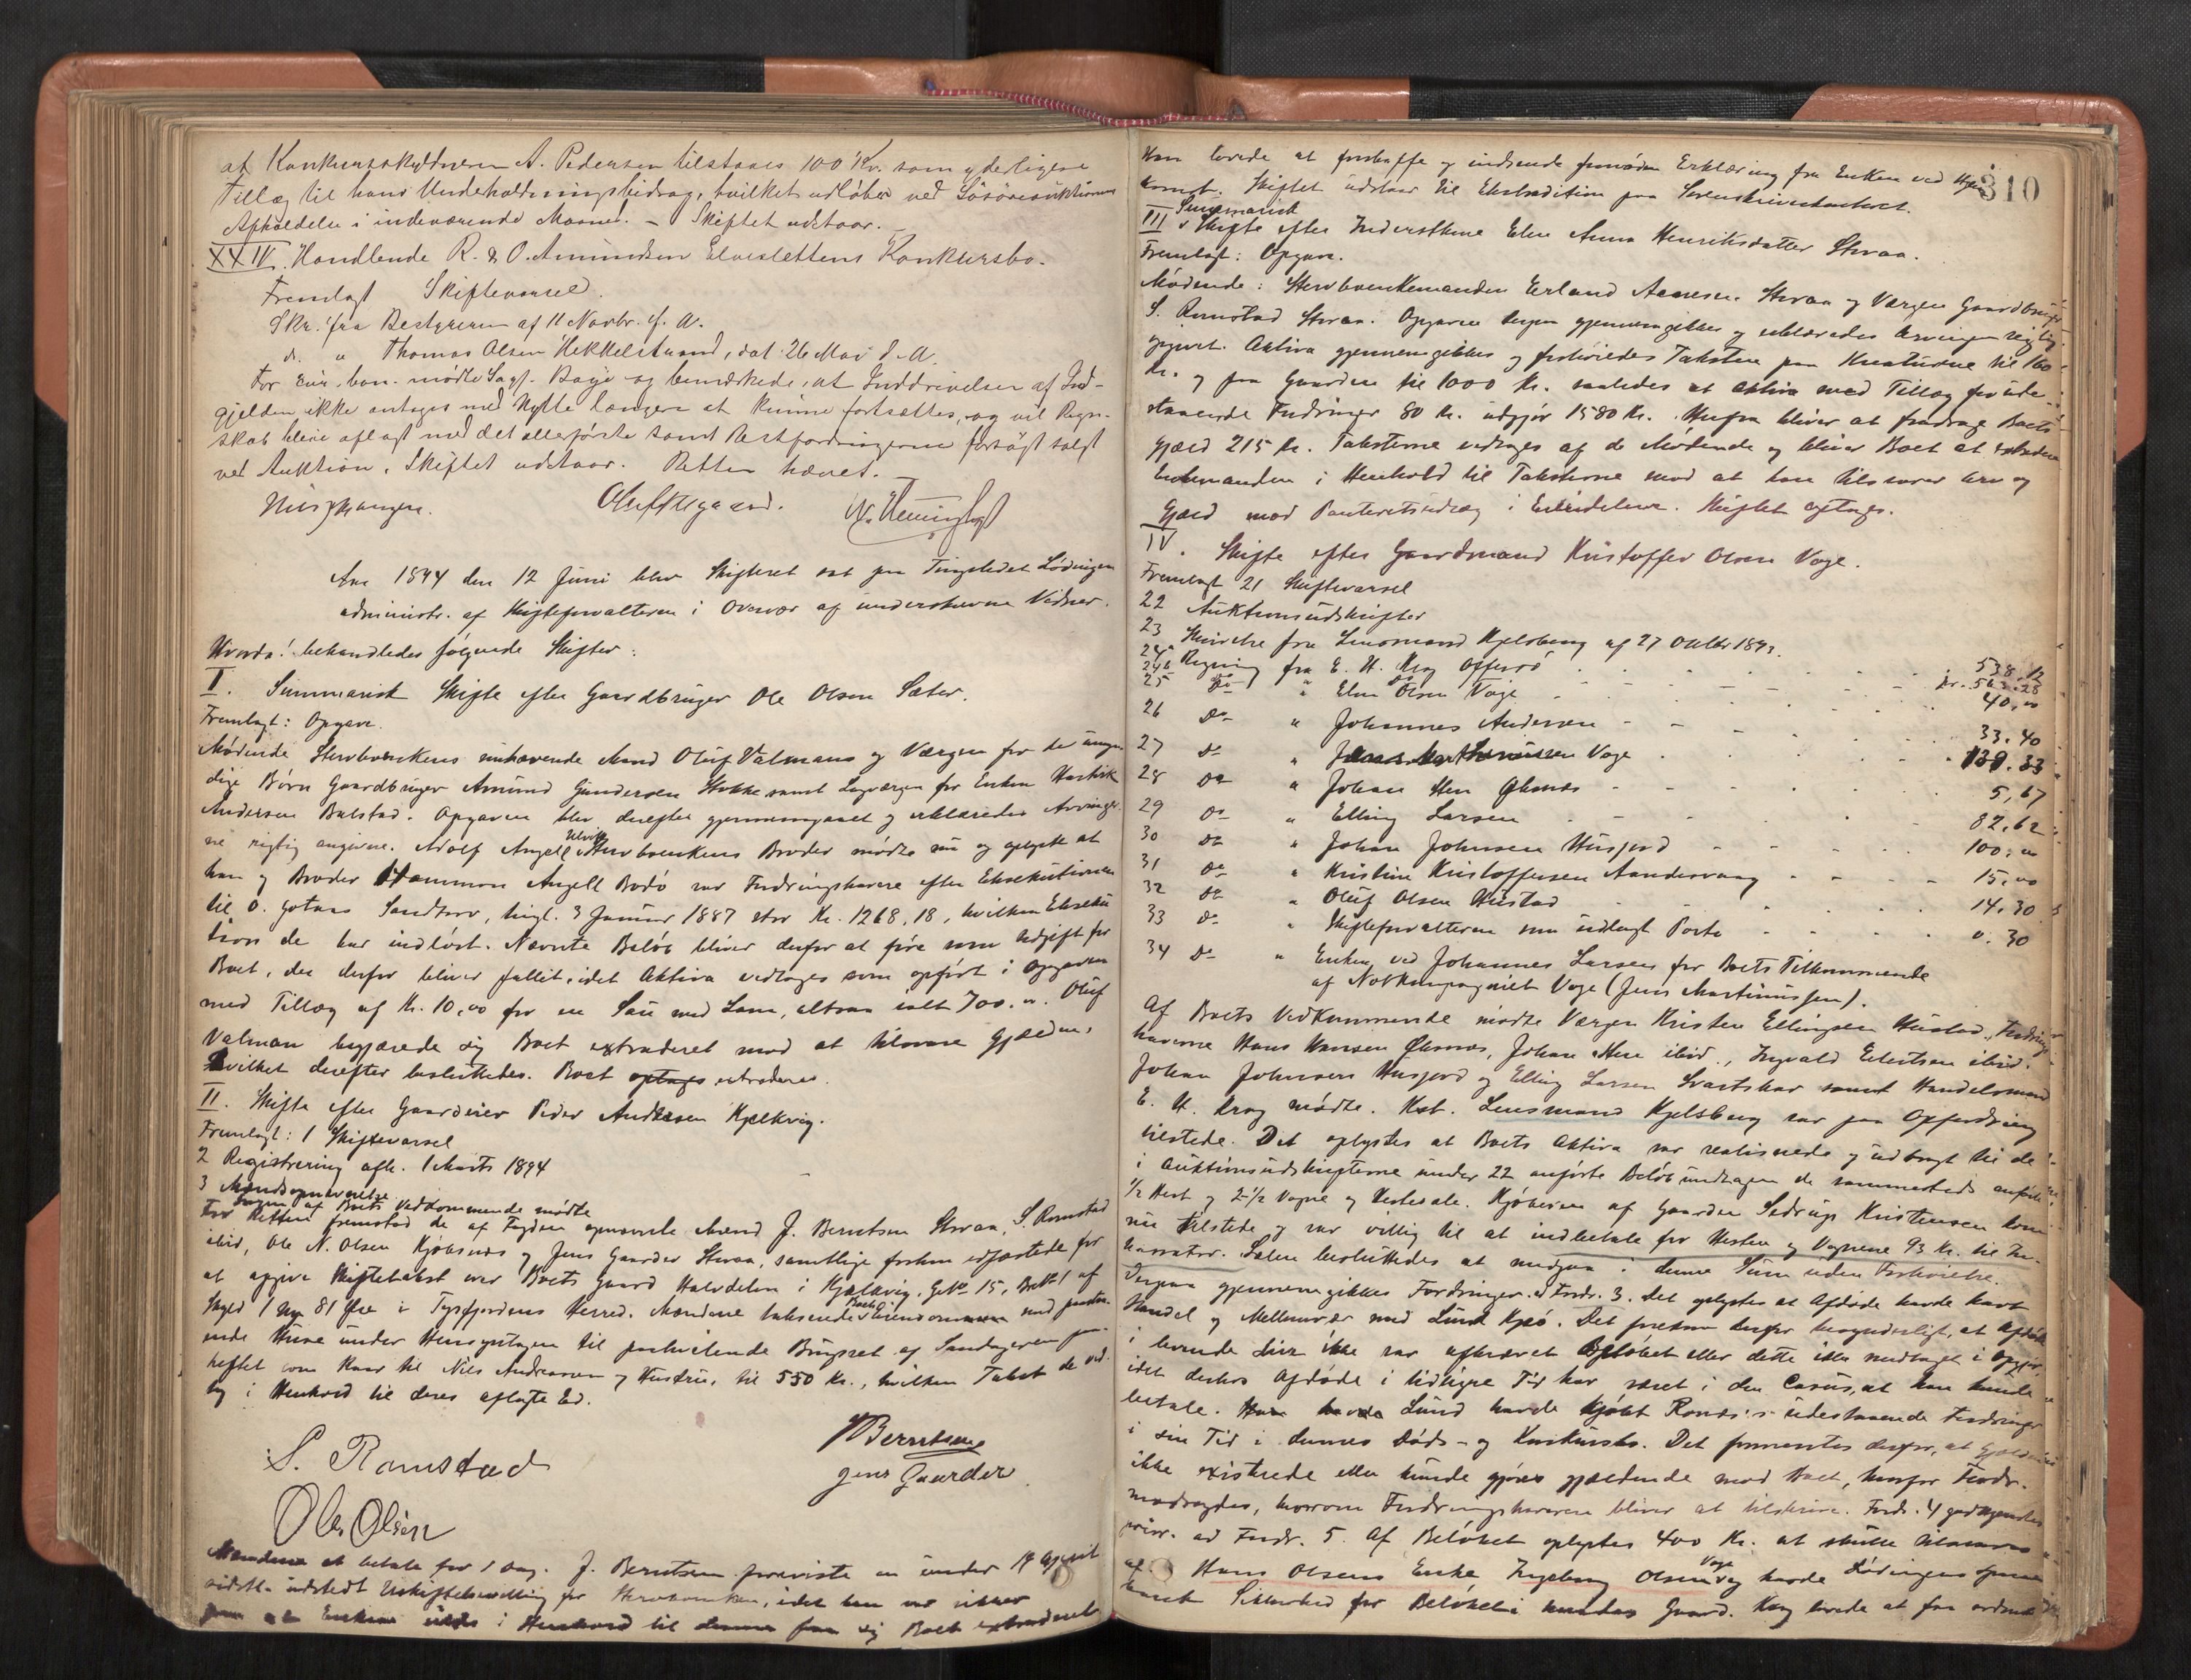 at Konkursskyldneren A. Pedersen tilstaaes 100 Kr. som yderligere
Tillæg til hans Underholdningsbidrag, hvilket udløber ved Løsøreauktionens
Afholdelse i indeværende Maaned. – Skiftet udstaar.
XXIV. Handlende R. & O. Amundsen Elvesletten's Konkursbo.
Fremlagt Skiftevarsel.
Skr. fra Bestyreren af 11 Novbr. f. A.
do. " Thomas Olsen Hekkelstrand, dat. 26 Mai d. A.
For bon. mødte Sagf. Baye og bemærkede, at Inddrivelsen af Ind-
gjelden ikke antages med Nytte længere at kunne fortsættes, og vil Regn-
skab blive aflagt med det allerførste samt Restfordringerne forsøgt solgt
ved Auktion. Skiftet udstaar. Retten hævet.
Aar 1894 den 12 Juni blev Skifteret sat paa Tingstedet Lødingen
administr. af Skifteforvalteren i Overvær af underskrevne Vidner.
Hvorda! behandledes følgende Skifter:
I. Summarisk Skifte efter Gaardbruger Ole Olsen Sæter.
Fremlagt: Opgave.
Mødende Stervboenkens nuhavende Mand Oluf Valmans og Værgen for de umyn-
dige Børn Gaardbruger Amund Gundersen Stokke samt Lagværgen for Enken Hartvik
Andersen Balstad. Opgaven blev derefter gjennemgaaet og erklæredes Arvinger-
ne rigtig angivne. Adolf Angell Ulvik Stervboenkens Broder mødte nu og oplyste at
han og Broder Hammon Angell Bodø var Fordringshavere efter Eksekutionen
til O. Gotaas Sandtorv, tingl. 3 Januar 1887 stor Kr. 1268,18, hvilken Eksekú-
tion de har indløst. Nævnte Beløb bliver derfor at føre som Udgift for
Boet, der derfor bliver fallit, idet Aktiva vedtages som opført i Opgaven
med Tillæg af Kr. 10,00 for en Sau med Lam, altsaa ialt 700.00. Oluf
Valman begjærede sig Boet extraderet mod at tilsvare Gjælden,
Hvilket derefter besluttedes. Boet optages extraderes.
II. Skifte efter Gaardeier Peder Andersen Kjelkvig.
Fremlagt: 1 Skiftevarsel
2 Registrering afh. 1 Marts 1894
3 Mandsopnævnelse
Ingen af Boets Vedkommende mødte
For Retten fremstod de af Fogden opnævnte Mænd J. Berntsen Storaa, S. Ramstad
ibid, Ole N. Olsen Kjøbsnæs og Jens Gaarder Storaa, samtlige forhen edfæstede for
at afgive Skiftetakst over Boets Gaard Halvdelen i Kjelkvig, GNo 15, BNo 1 af
Skyld 1 Mk 81 Øre i Tysfjordens Herred. Mændene takserede Boets Eiendommen med paastaa-
ende Huse under Hensyntagen til paahvilende Brugsret og Sandageren paa-
heftet som Kaar til Nils Andreassen og Hustru, til 550 Kr., hvilken Takst de ved-
tog i Henhold til deres aflagte Ed.
S. Ramstad
J Berntsen
Jens Gaarder
Ole Olsen
Mændene at betale for 1 Dag. J. Berntsen foreviste en under 14 April
sidstl. udstedt Uskiftebevilling for Stervboenken, idet han var sikker
paa at Enken vilde i Henhold til denne faa sig Boet extraderet
310
Han lovede at fremskaffe og indsende fornøden Erklæring fra Enken ved
Skiftet udstaar til Ekstradition paa Sorenskriverkontoret.
III Summarisk Skifte efter Inderstkone Elen Anna Henriksdatter Storaa.
Fremlagt: Opgave.
Mødende: Stervboenkemanden Erland Aanesen Storaa og Værgen Gaardbruger
S. Ramstad Storaa. Opgaven gjennemgikkes og erklæredes Arvingen rigtig
opgivet. Aktiva gjennemgikkes og forhøiedes Taksten paa Kreaturene til 160
Kr. og paa Gaarden til 1000 Kr. saaledes at Aktiva med Tillæg for ude-
staaende Fordringer 80 Kr. udgjør 1580 Kr. Herfra bliver at fradrage Boets
Gjæld 215 Kr. Taksterne vedtages af de Mødende og bliver Boet at extradere
Enkemanden i Henhold til Taksterne mod at han tilsvarer Arv og
Gjæld mod Panteretsudlæg i Eiendelene. Skiftet optages.
IV. Skifte efter Gaardmand Kristoffer Olsen Vage.
Fremlagt 21 Skiftevarsel
22 Auktionsudskrifter
23 Skrivelse fra Lensmand Kjelsberg af 27 Oktbr 1893.
24a Regning fra E. H. Krag Offersø . . . 538.12
24b Kr. 563.28
25 Do " Elen Olsen Vage . . . 40,00
26 Do " Johannes Andersen . . . 33.40
27 Do " Jens Martinussen Vage . . . 139.33
28 Do " Johan Steen Øksnæs . . . 5,67
29 Do " Elling Larsen . . . 82,62
30 Do " Johan Johnsen Husjord . . . 100,00
31 Do " Kristine Kristoffersen Aandervaag . . . 15,00
32 Do " Oluf Olsen Hustad . . . 14.30
33 Do " Skifteforvalteren som udlagt Porto . . . 0.30
34 Do " Enken ved Johannes Larsen for Boets Tilkommende
af Notkompagniet Vage (Jens Martinussen).
Af Boets Vedkommende mødte Værgen Kristen Ellingsen Hustad, Fordrings-
haverne Hans Hansen Øksnæs, Johan Steen ibid., Ingvald Edvartsen ibid.
Johan Johnsen Husjord og Elling Larsen Svartskar samt Handelsmand
E. H. Krag mødte. Kst. Lensmand Kjelsberg var paa Opfordring
tilstede. Det oplystes at Boets Aktiva var realiserede og udbragt til de
i Auktionsudskrifterne under 22 anførte Beløb undtagen de sammesteds anførte
1/2 Hest og 2 1/2 Vogne og Hestesale. Kjøberen af Gaarden Sedrup Kristensen kom
nu tilstede og var villig til at indbetale for Hesten og Vognene 93 Kr. til In-
kassator. Salen besluttedes at medgaa i denne Sum uden Forhøielse.
Derpaa gjennemgikkes Fordringer. ad Fordr. 3. Det oplystes at Afdøde havde havt
Handel og Mellemvær med Lund Kjeø. Det forekom derfor besynderligt, at Afdøde
i levende Live ikke var afkrævet Beløbet eller dette ikke medtaget i Opgjør,
idet desuden Afdøde i tidligere Tid har været i den Casus, at han kunde
betale. Han havde Lund havde kjøbt Ronæs's udestaaende Fordringer
i sin Tid i dennes Døds- og Konkursbo. Det formentes derfor, at Gjælden
ikke existerede eller kunde gjøres gjældende mod Boet, hvorfor Fordr.
modsagdes, hvorom Fordringshaveren bliver at tilskrive. Fordr. 4 godkjendtes
prior. ad Fordr. 5. Af Beløbet oplystes 400 Kr. at skulle tilsvares
af Hans Olsens Enke Ingeborg Olsen Vage og havde Lødingens Spare-
bank Sikkerhed for Beløbet i hendes Gaard. Krag lovede at faa ordnet